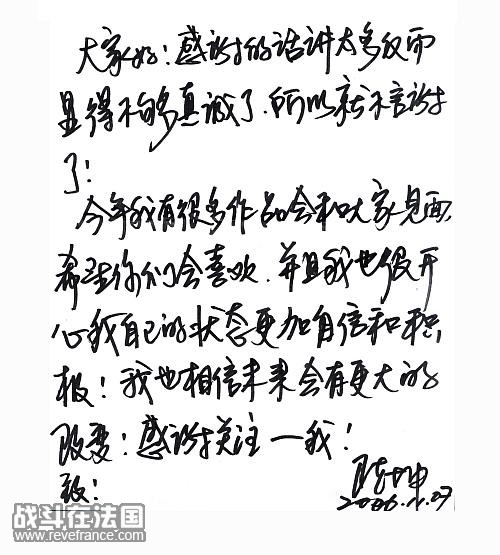 大家好：感谢的话讲太多反而
显得不够真诚了.所以就不言谢
了！
今年我有很多作品会和大家见面.
希望你们会喜欢.并且我也很开
心我自己的状态更加自信和积
极！我也相信未来会有更大的
改变！感谢关注一我！
致！
陈坤
2006.1.07
战斗在法国
www.revefrance.com